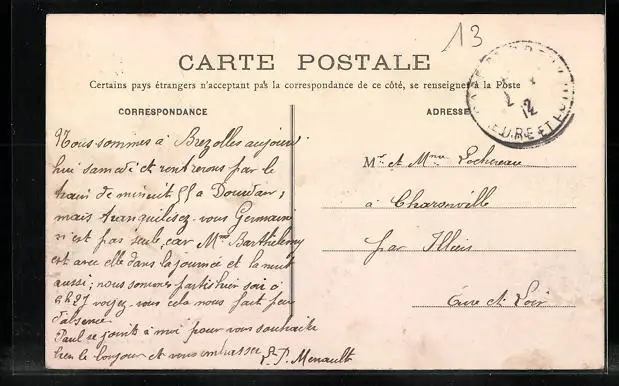 13
CARTE POSTALE
Certains pays étrangers n'acceptant pas la correspondance de ce côté, se renseigner à la Poste
CORRESPONDANCE
Nous sommes à Brezolles aujour
hui samedi et rentrerons par le
train de minuit 55 à Dourdan,
mais tranquilisez-vous Germaine
n'est pas seule, car Mme Barthélemy
est avec elle dans la journée et la nuit
aussi; nous sommes partis hier soir à
6h27 voyez-vous cela nous fait peu
d'absence
Paul se joint à moi pour vous souhaiter
bien le bonjour et vous embrasser P. Menault
ADRESSE
Mr et Mme Lochereau
à Charonville
par Illiers
Eure et Loir
12
EURE ET LOIR